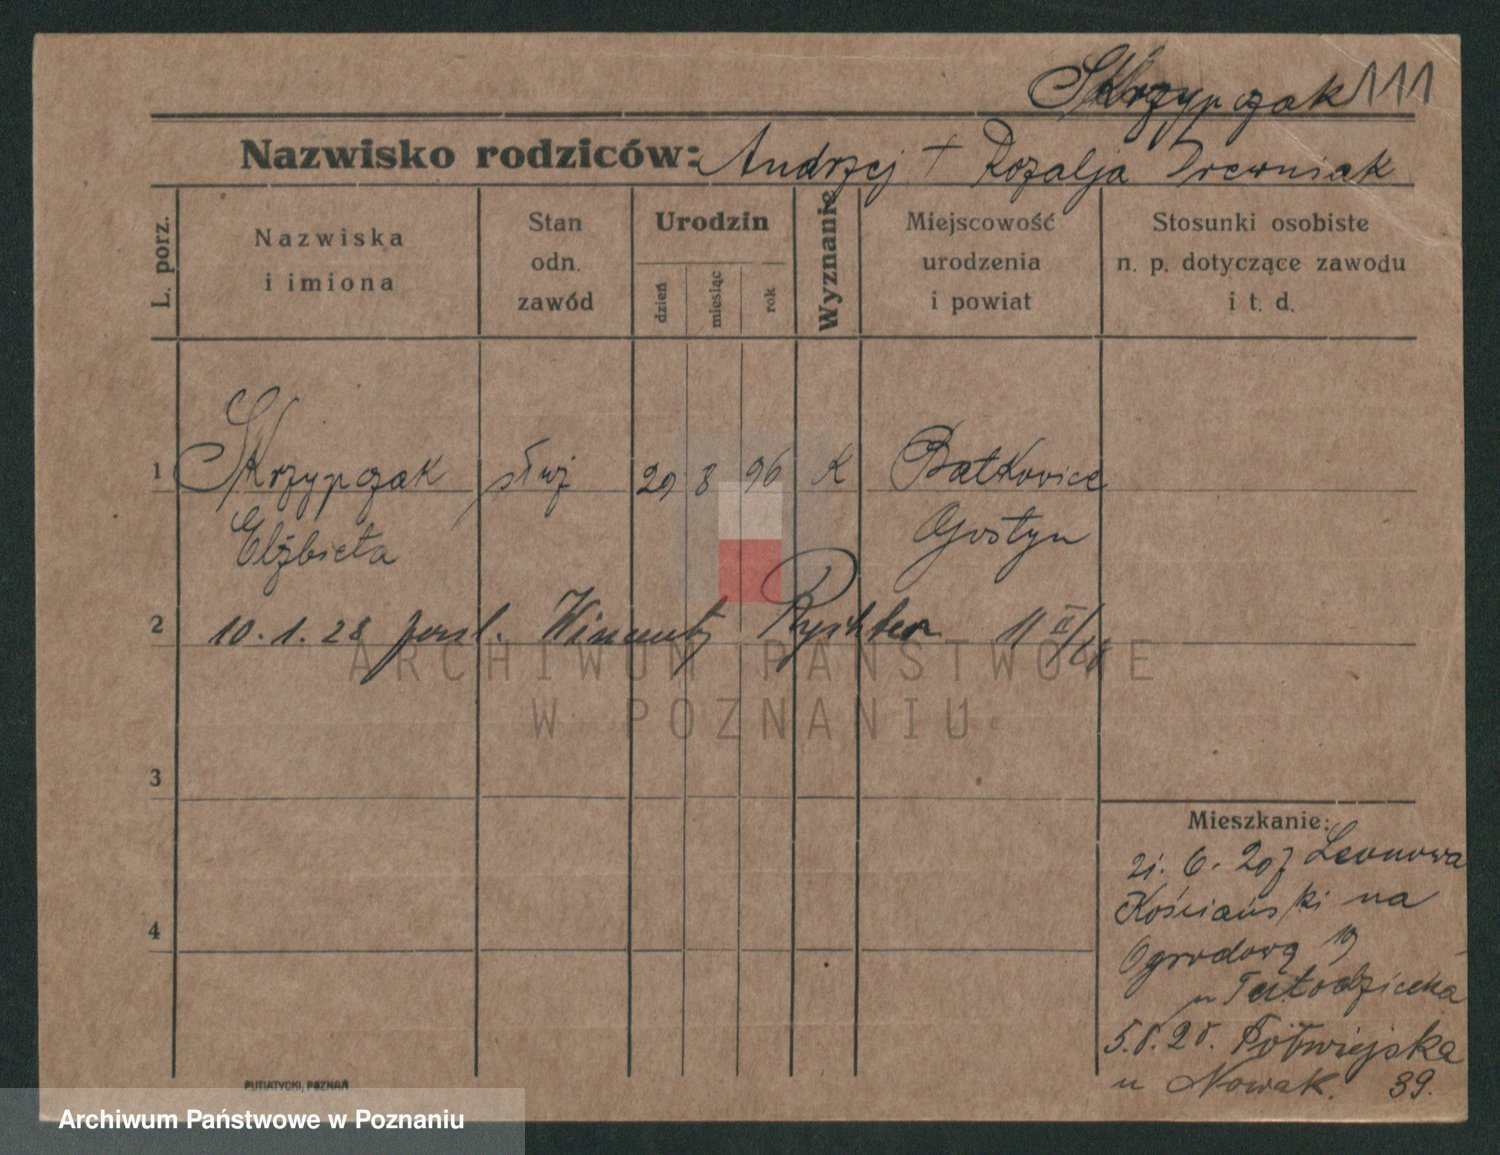 Skrzypczak 111
Nazwisko rodziców: Andrzej + Rozalja Drewniak
L. porz.
Nazwiska
i imiona
Stan
odn.
zawód
Urodzin
dzień
miesiąc
rok
Wyznanie
Miejscowość
urodzenia
i powiat
Stosunki osobiste
n. p. dotyczące zawodu
i t. d.
1 Skrzypczak służ 29 8 96 K Batkovice
Elżbieta Gostyn
2 10.1.28 Wincenty 11 II/28
3
4
Mieszkanie:
21. 6. 20 z Leonowa
Kościański na
Ogrodową 19
u
5.8.28. Półwiejska
u Nowak. 39.
PUTIATYCKI, POZNAŃ
ARCHIWUM PAŃSTWOWE
W POZNANIU
Archiwum Państwowe w Poznaniu